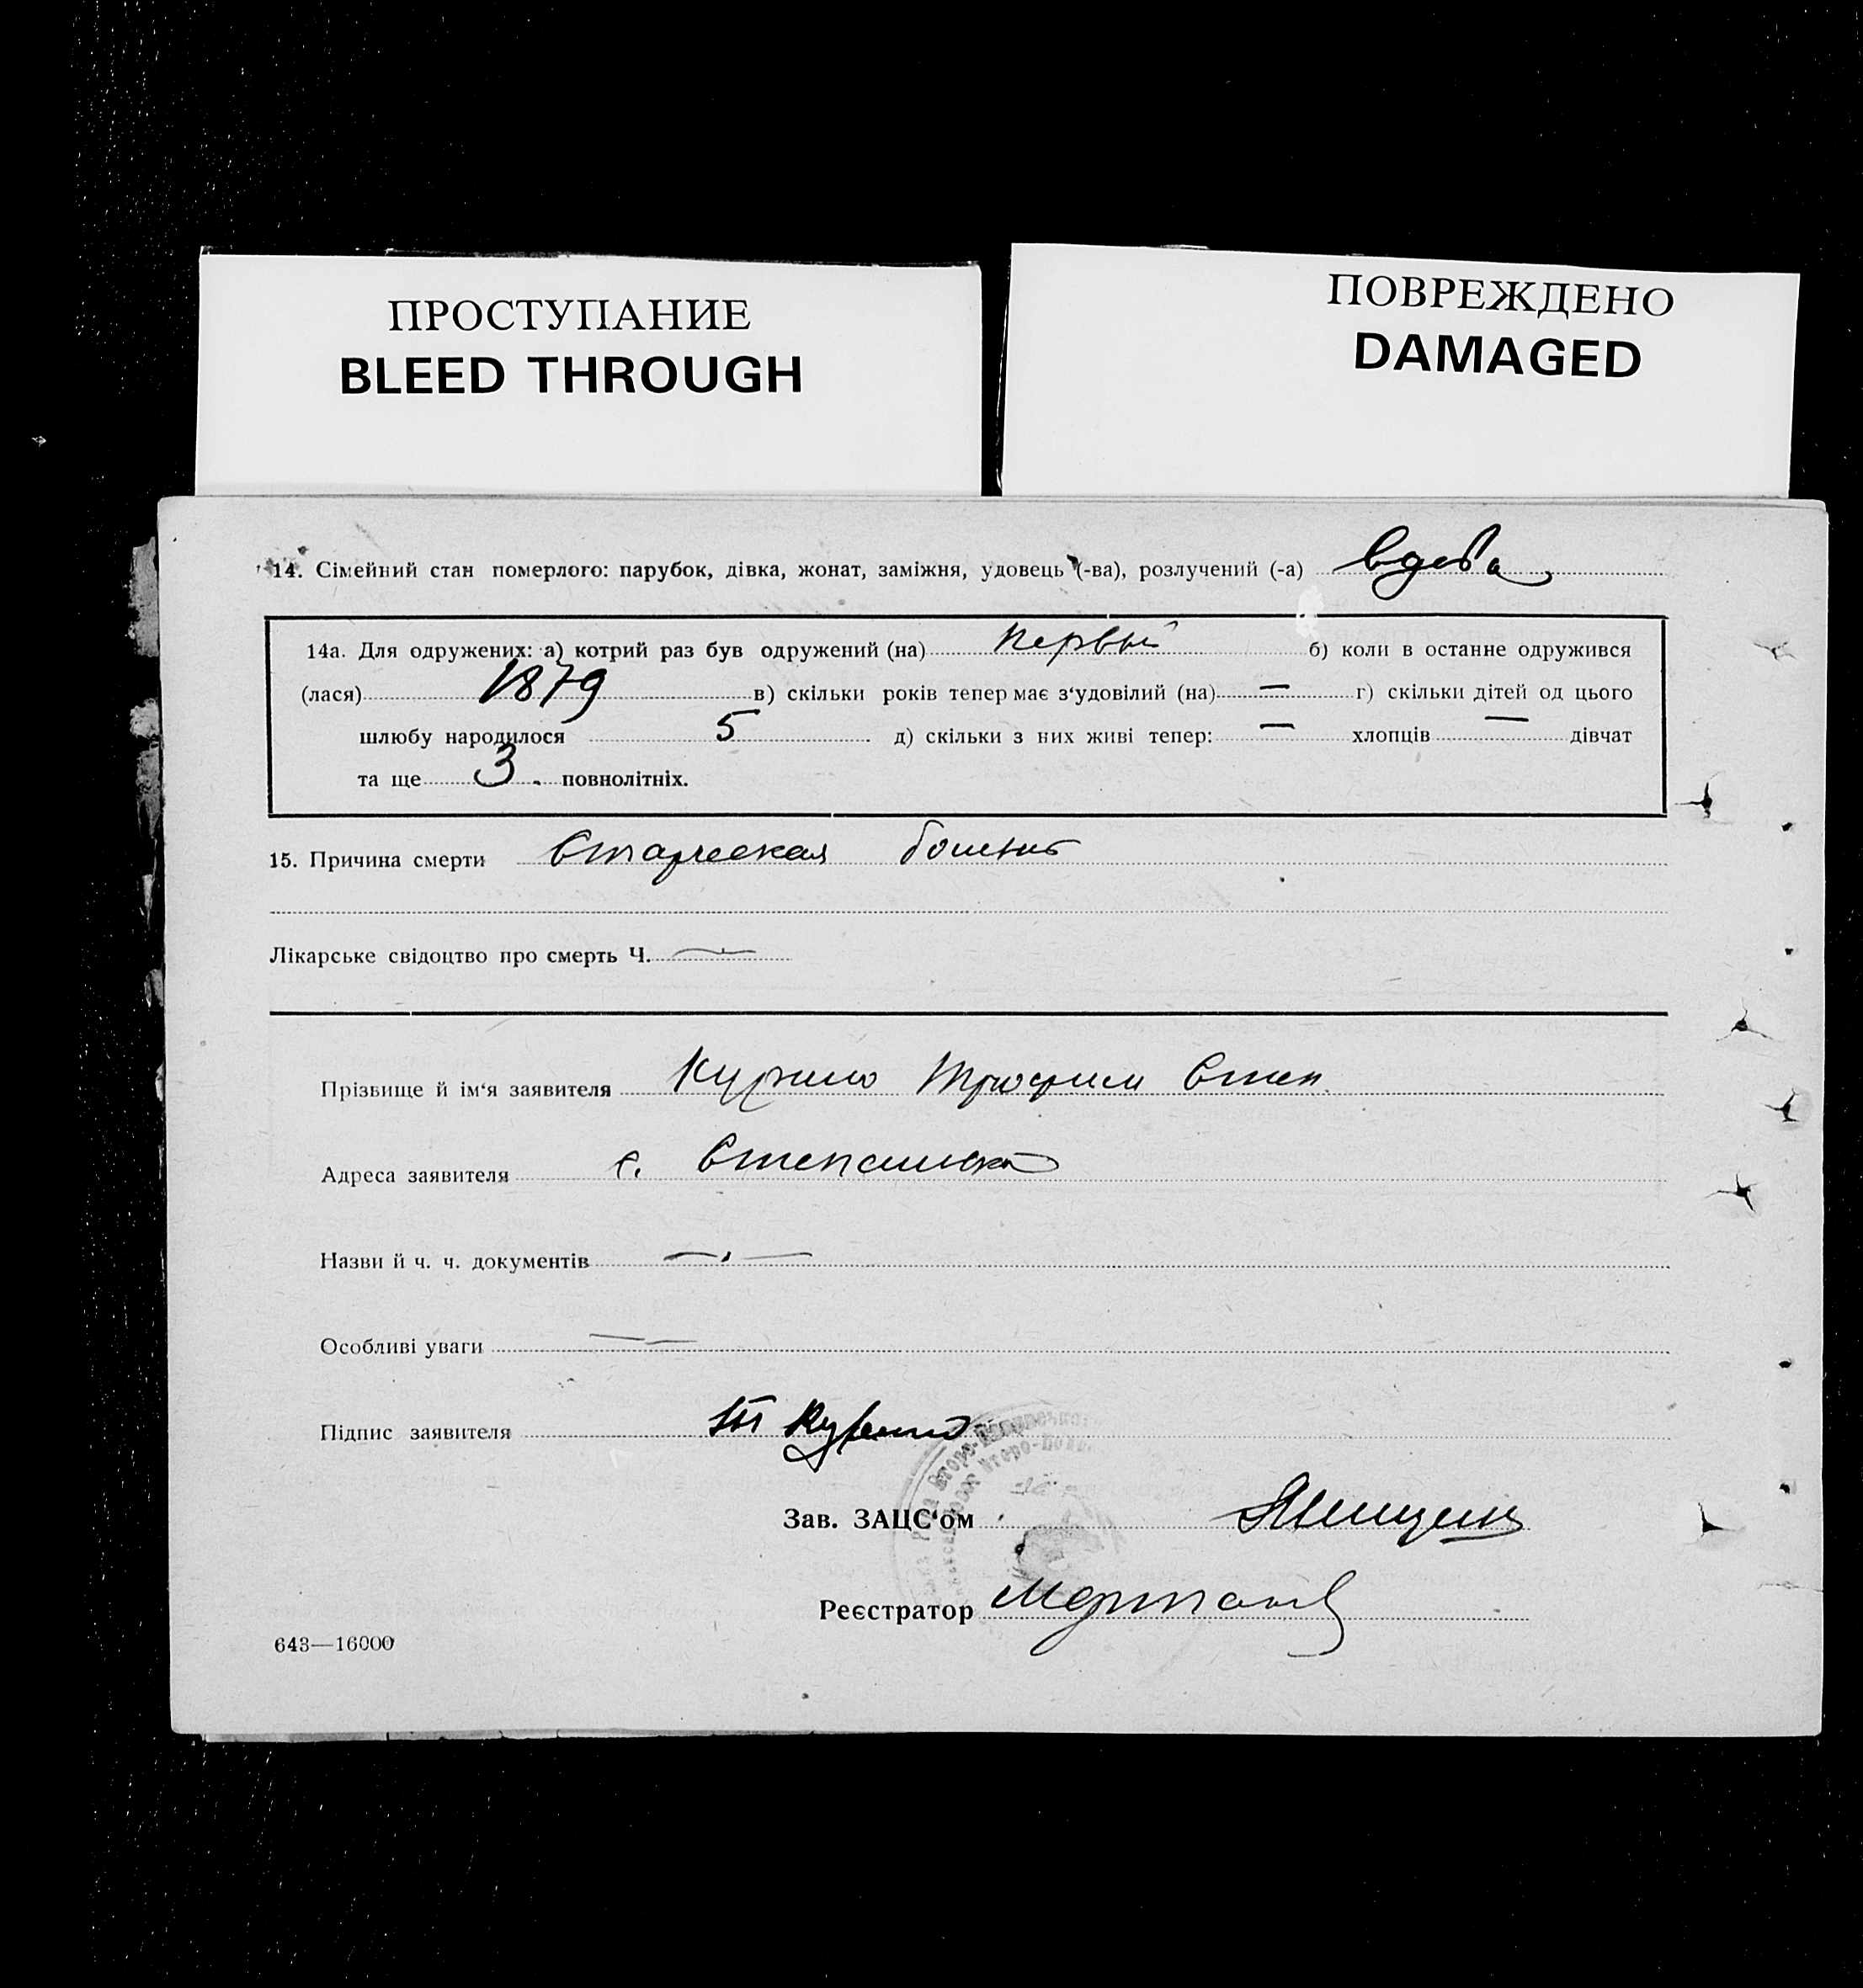 ПРОСТУПАНИЕ
BLEED THROUGH
ПОВРЕЖДЕНО
DAMAGED
14. Сімейний стан померлого: парубок, дівка, жонат, заміжня, удовець (-ва), розлучений (-а) вдова
14а. Для одружених: а) котрий раз був одружений (на) первый б) коли в останне одружився
(лася) 1879 в) скільки років тепер має з'удовілий (на) — г) скільки дітей од цього
шлюбу народилося 5 д) скільки з них живі тепер: — хлопців — дівчат
та ще 3. повнолітніх.
15. Причина смерти Старческая болезнь
Лікарське свідоцтво про смерть Ч. —
Прізвище й ім'я заявителя Курило Трофим Степ.
Адреса заявителя с. Степановка
Назви й ч. ч. документів —
Особливі уваги —
Підпис заявителя Т Курило
Зав. ЗАЦС'ом
Реєстратор
643—16000